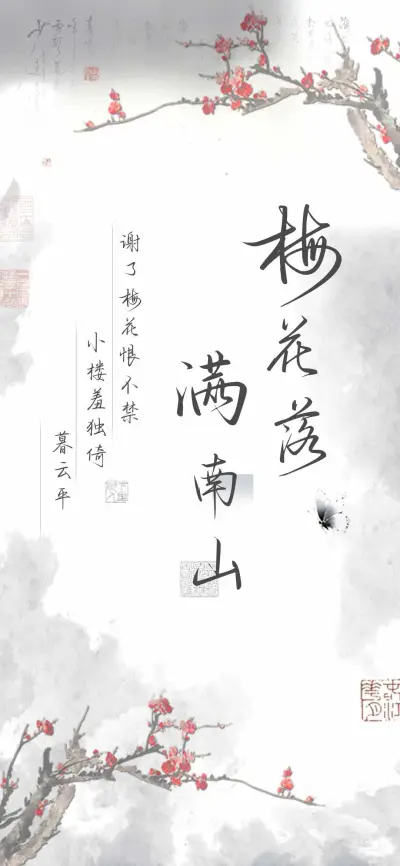 梅花落
满南山
谢了梅花恨不禁
小楼羞独倚
暮云平